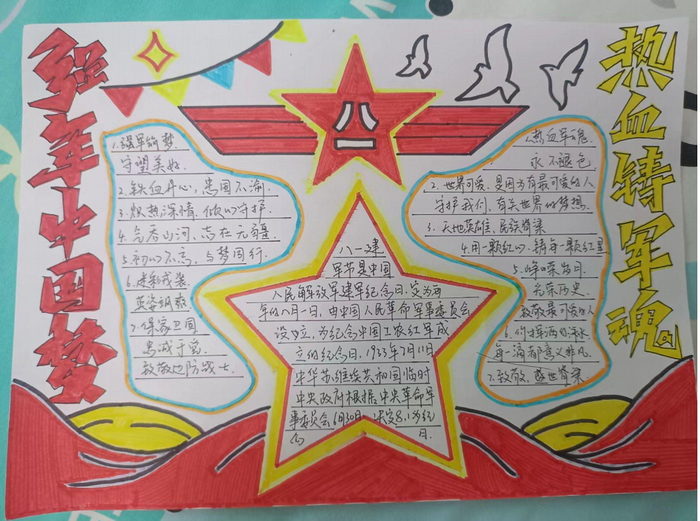 强军中国梦
热血铸军魂
八一
1.强军的梦
守望美好.
2.铁血丹心,忠国不渝.
3.炽热深情,倾心守护.
4.气吞山河、志在无疆.
5.初心不忘,与梦同行.
6.迷彩戎装
英姿飒爽
7.保家卫国
忠诚于党
致敬边防战士.
八一建
军节是中国
人民解放军建军纪念日,定为每
年的八月一日,由中国人民革命军事委员会
设立,为纪念中国工农红军成
立的纪念日,1933年7月11日
中华苏维埃共和国临时
中央政府根据,中央革命军
事委员会6月30日 决定8.1为纪
念 日.
1.热血军魂.
永不褪色
2.世界可爱,是因为有最可爱的人
守护我们,有关世界的梦想.
3.天地英雄、民族脊梁
4.用一颗红心,铸每一颗红星
5.峥嵘岁月
光荣历史.
致敬最可爱的人
6.你挥洒的汗水
每一滴都意义非凡
7.致敬、盛世脊梁